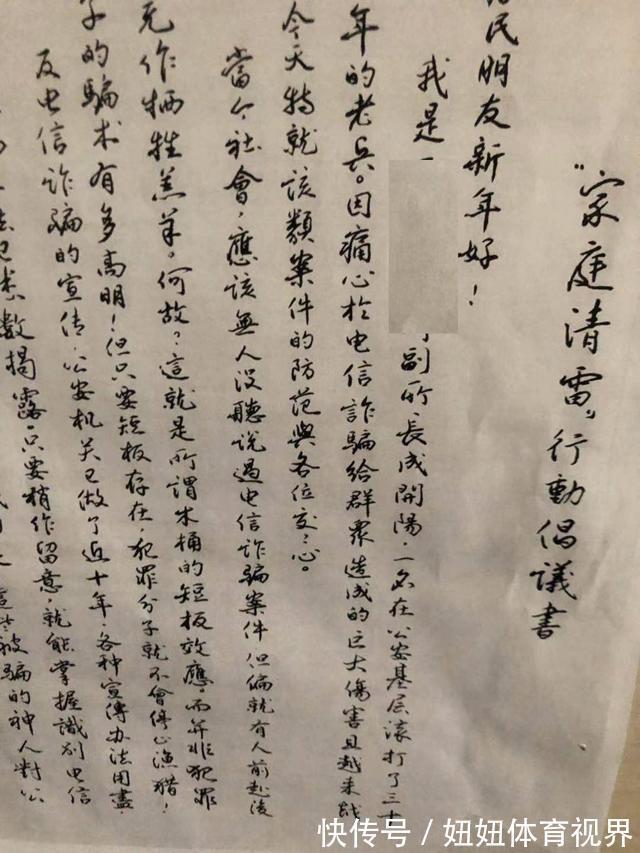 “家庭清雷”行動倡議書
民朋友新年好！
我是 副所長成開陽，一名在公安基层滚打了三十
年的老兵。因痛心於电信詐騙給群眾造成的巨大傷害且越来
今天特就该類案件的防范與各位交交心。
當今社會，應該無人没聽説過电信诈騙案件但偏就有人前赴後
作牺牲羔羊。何故？這就是所謂木桶的短板效應。而并非犯罪
子的騙术有多高明！但只要短板存在，犯罪分子就不會停止漁猎！
反电信诈騙的宣传，公安机关已做了近十年，各种宣傳办法用盡，
已悉數揭露，只要稍作留意，就能掌握識别电信
這些被騙的神人對公
快传号／妞妞体育视界